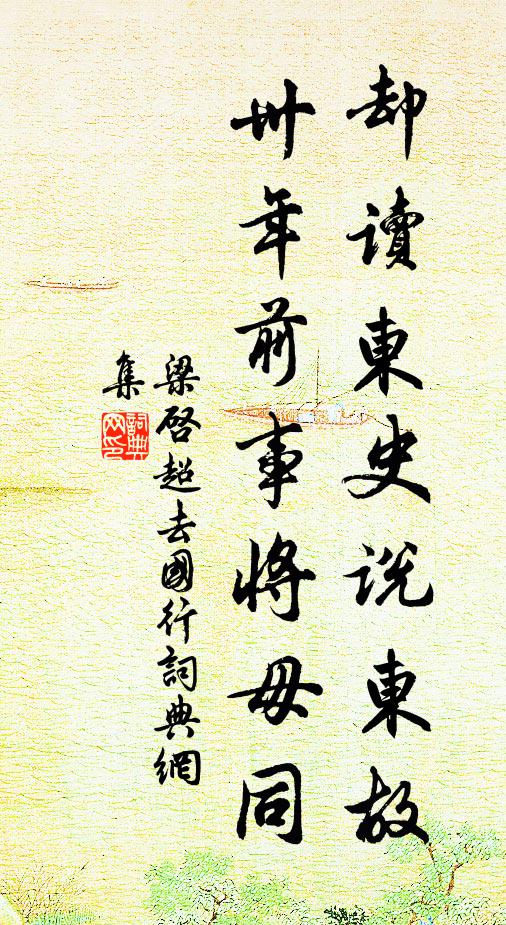 却讀東史說東故
卅年前事將毋同
梁啓超去國行詞典網
集
詞典網印